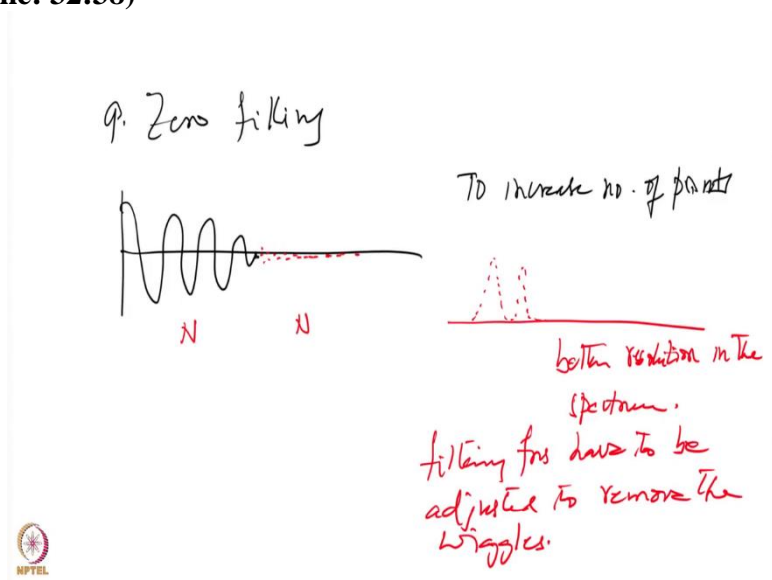 9. Zero filling
To increase no. of points
N
N
better resolution in the
spectrum.
filtering fns have to be
adjusted to remove the
wiggles.
NPTEL